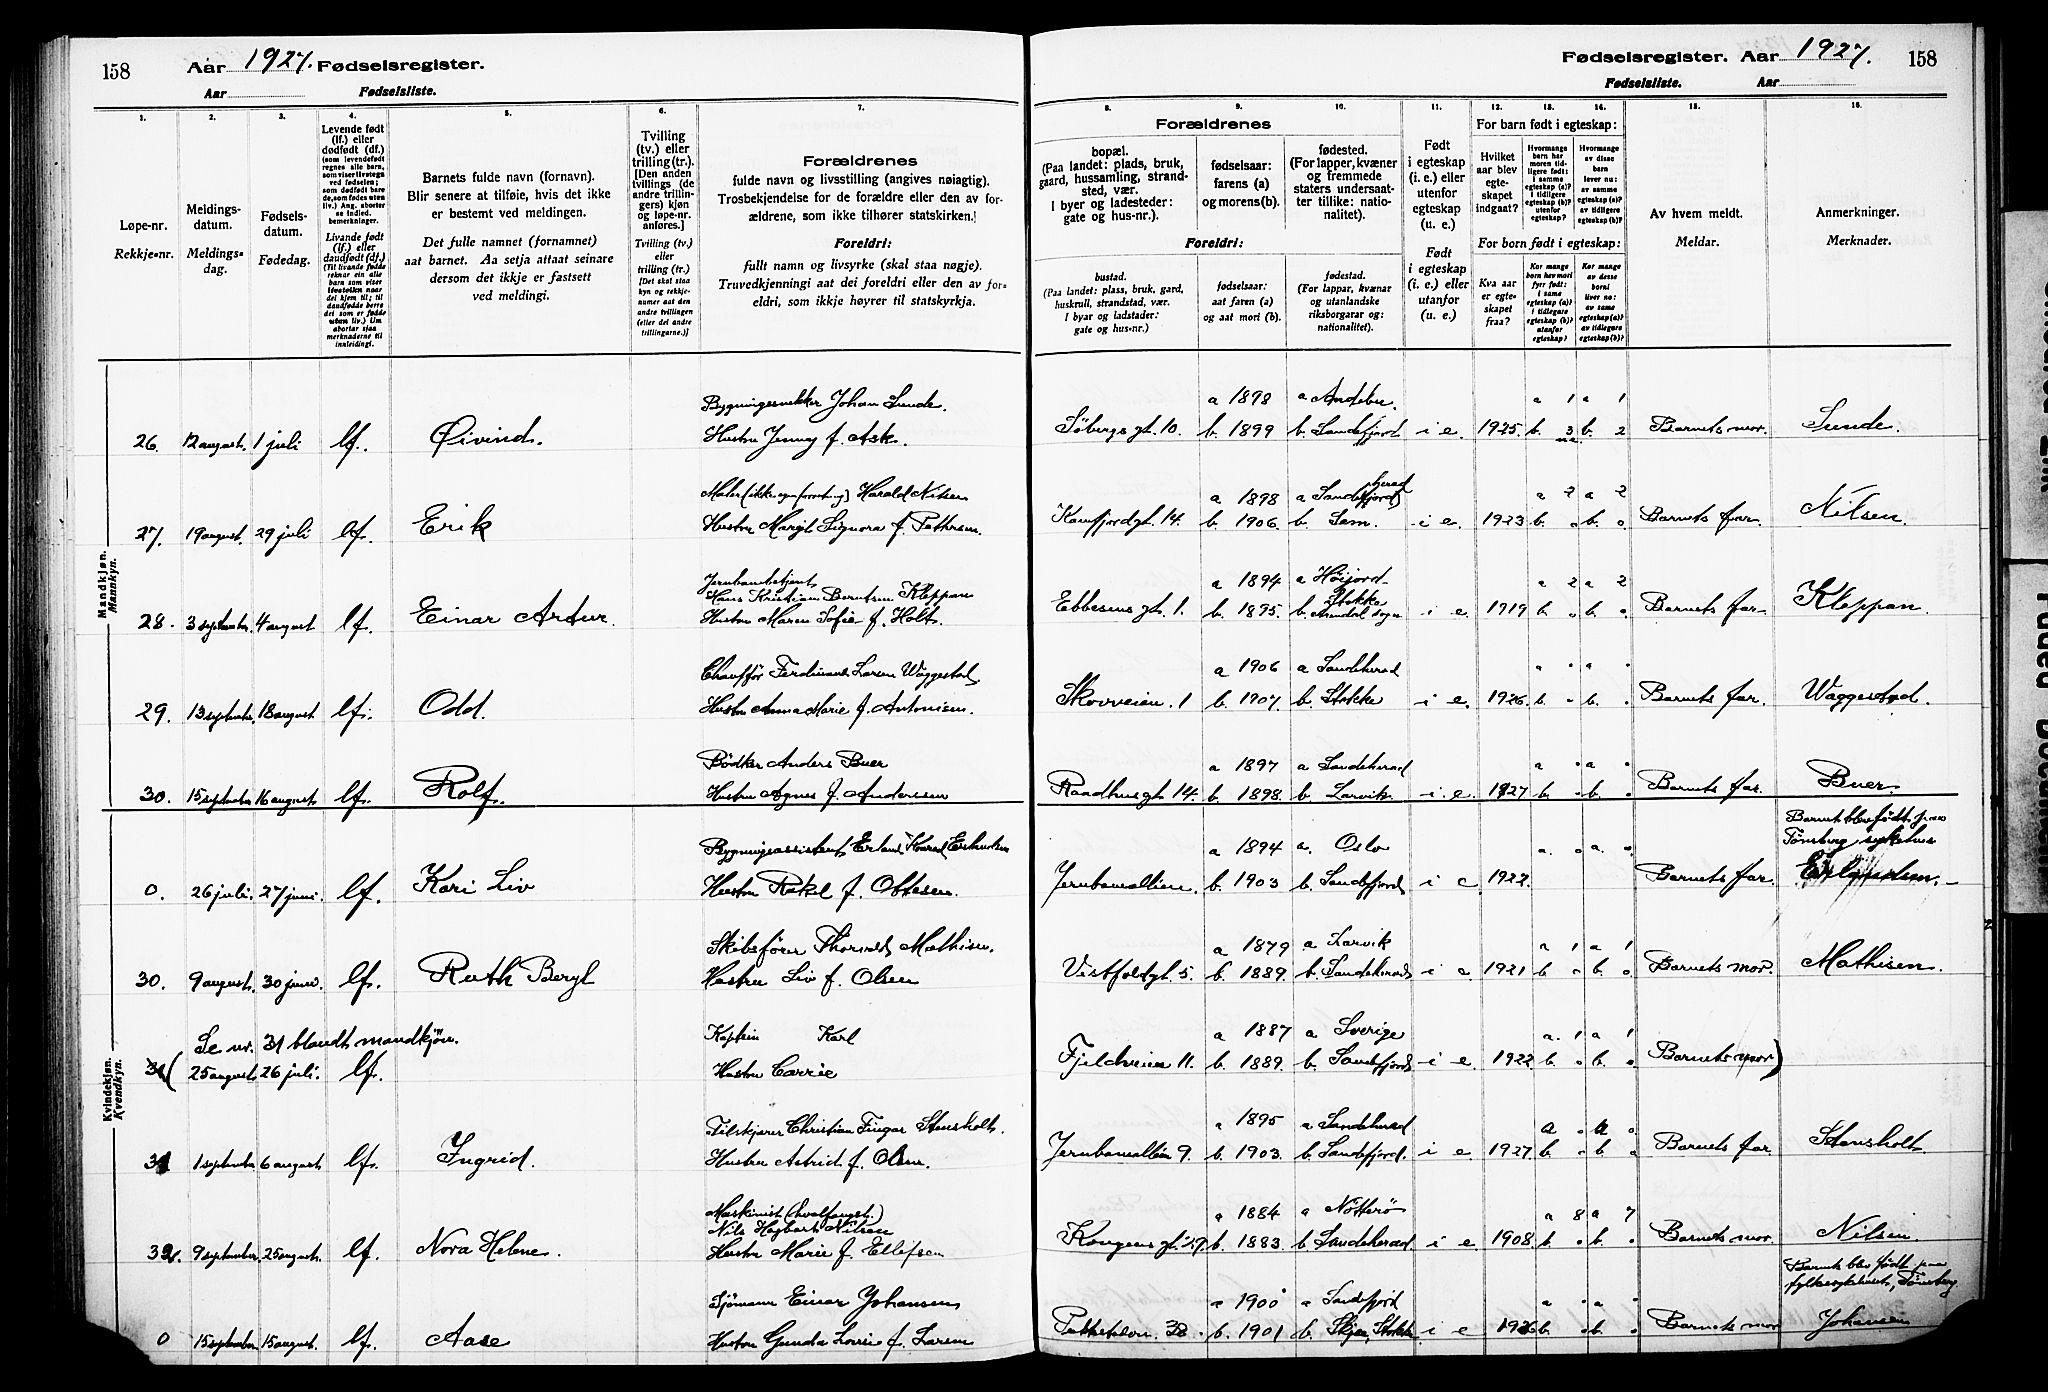 158 Aar 1927. Fødselsregister.
Aar Fødselsliste.
1. 2. 3. 4. 5. 6. 7.
Løpe-nr.
Rekkje-nr.
Meldings-
datum.
Meldings-
dag.
Fødsels-
datum.
Fødedag.
Levende født
(lf.) eller
dødfødt (df.)
(som levendefødt
regnes alle barn,
som viser livstegn
ved fødselen;
som dødfødt bare
de, som fødes uten
liv.) Ang. aborter
se indled.
bemerkninger.
Livande født
(lf.) eller
daudfødt (df.)
(Til livande fødde
reknar ein alle
barn som viser
livsteikn naar
dei kjem til; til
daudfødde berre
dei som er fødde
utan liv.) Um
abortar sjaa
merknaderne til
innleiding).
Barnets fulde navn (fornavn).
Blir senere at tilføie, hvis det ikke
er bestemt ved meldingen.
Det fulle namnet (fornamnet)
aat barnet. Aa setja attaat seinare
dersom det ikkje er fastsett
ved meldingi.
Tvilling
(tv.) eller
trilling (tr.).
[Den anden
tvillings (de
andre trillin-
gers) kjøn
og løpe-nr.
anføres.]
Tvilling (tv.)
eller
trilling (tr.)
[Det skal staa
kyn og rekkje-
numer aat den
andre tvillingen
(eller dei andre
trillingarne.)]
Forældrenes
fulde navn og livsstilling (angives nøiagtig).
Trosbekjendelse for de forældre eller den av for-
ældrene, som ikke tilhører statskirken.
Foreldri:
fullt namn og livsyrke (skal staa nøgje).
Truvedkjenningi aat dei foreldri eller den av for-
eldri, som ikkje høyrer til statskyrkja.
Mandkjøn.
Mannkyn.
26. 12 august. 1 juli lf. Øivind. Bygningssnekker Johan Sunde.
Hustru Jenny f. Ask.
27. 19 august. 29 juli lf. Erik Maler Harald Nilsen
Hustru Margit Signora f. Pettersen.
28. 3 september. 4 august lf. Einar Artur. Jernbanebetjent
Hans Kristian Berntsen Kleppan
Hustru Maren Sofie f. Holt.
29. 13 september. 18 august. lf. Odd. Chauffør Ferdinand Larsen Waggestad.
Hustru Anna Marie f. Antonsen.
30. 15 september 16 august. lf. Rolf. Bødker Anders Buer
Hustru Agnes f. Anderssen
Kvindekjøn.
Kvendkyn.
0. 26 juli. 27 juni. lf. Kari Liv Bygningsassistent Erland Konrad Erlandsen
Hustru Rakel f. Ottesen.
30. 9 august. 30 juni. lf. Ruth Beryl Skibsfører Thorvald Mathisen.
Hustru Liv f. Olsen
Se nr. 31 blandt mandkjøn.
31 ( 25 august. 26 juli. lf. Kaptein Karl
Hustru Carrie
31 1 september. 6 august. lf. Ingrid. Filskjærer Christian Fingar Stensholt.
Hustru Astrid f. Olsen.
32. 9 september. 25 august. lf. Nora Helene. Maskinist (hvalfangst.)
Nils Hagbart Nilsen
Hustru Marie f. Ellefsen
0 15 september 15 august. lf. Aase Sjømann Einar Johansen
Hustru Gunda Lovise f. Larsen
Fødselsregister. Aar 1927. 158
Fødselsliste. Aar
8. 9. 10. 11. 12. 13. 14. 15. 16.
Forældrenes
bopæl.
(Paa landet: plads, bruk,
gaard, hussamling, strand-
sted, vær.
I byer og ladesteder:
gate og hus-nr.).
fødselsaar:
farens (a)
og morens (b).
fødested.
(For lapper, kvæner
og fremmede
staters undersaat-
ter tillike: natio-
nalitet).
Foreldri:
bustad.
(Paa landet: plass, bruk, gard,
huskrull, strandstad, vær.
I byar og ladstader:
gate og hus-nr.)
fødselsaar:
aat faren (a)
og aat mori (b).
fødestad.
(For lappar, kvænar
og utanlandske
riksborgarar og:
nationalitet).
Født
i egteskap
(i. e.) eller
utenfor
egteskap
(u. e.)
Født
i egteskap
(i. e.) eller
utanfor
(u. e.)
For barn født i egteskap:
Hvilket
aar blev
egte-
skapet
indgaat?
Hvormange
barn har
moren tid-
ligere født:
i samme
egteskap (a)?
i tidligere
egteskap (b)?
utenfor
egteskap?
Hvormange
av disse
barn
lever nu:
av samme
egteskap (a)?
av tidligere
egteskap (b)?
For born født i egteskap:
Kva aar
er egte-
skapet
fraa?
Kor mange
born hev mori
fyrr født:
i same
egteskap (a)?
i tidlegare
egteskap (b)?
utanfor
egteskap?
Kor mange
av desse
borni
liver no:
av same
egteskap (a)?
av tidlegare
egteskap (b)?
Av hvem meldt.
Meldar.
Anmerkninger.
Merknader.
Søbergs gt. 10. a 1898 b. 1899 a Andebu. b. Sandefjord i e. 1925. a 1 b. 3 a 1 b. 2 Barnets mor. Sunde.
Kamfjordgt. 14. a 1898 b. 1906. a Sandefjord b. Sem. i e. 1923 a 2 b. 0 a 2 b. 0 Barnets far. Nilsen.
Ebbesens gt. 1. a 1894 b. 1895. a Høijord b. Stokke
Arendal sogn i e. 1919 a 2 b. 0 a 2 b. 0 Barnets far. Kleppan.
Skovveien 1 a 1906 b. 1907. a Sandeherad b. Stokke i e. 1926. a 0 b. 0 a 0 b. 0 Barnets far. Waggestad.
Raadhusgt. 14. a 1897 b. 1898. a Sandeherad b. Larvik. i. e. 1927 a 0 b. 0 a 0 b. 0 Barnets far. Buer.
Jernbanealleen. a 1894 b. 1903 a. Oslo b. Sandefjord i e 1922. a. 0 a. 0 Barnets far. Barnet blev født paa
Tønsberg sykehus
Erlandsen.
Vestfoldgt. 5. a 1879 b. 1889. a Larvik b. Sandeherad i e 1921 a 1 b. 0 a 1 b. 0 Barnets mor. Mathisen.
Fjeldveien 11. a 1887 b. 1889. a Sverige b. Sandefjord i e. 1922 a. 1 b. 0 a 1 b. 0 Barnets mor)
Jernbanealleen 9. a 1895 b. 1903. a Sandeherad b. Sandefjord. i e. 1927. a 0 b. 0 a 0 b. 0 Barnets far Stensholt
Kongens gt. 27 a 1884 b. 1883. a Nøtterø b. Sandeherad i e. 1908. a 8 b. 0 a 7 b. 0 Barnets mor. Nilsen.
a 1900 b. 1901 a Sandefjord b. Skjee, Stokke i e 1926 a 0 b. 0 a 0 b. 0 Barnets mor Barnet blev født paa
fylkessykehuset, Tønsberg
Johansen